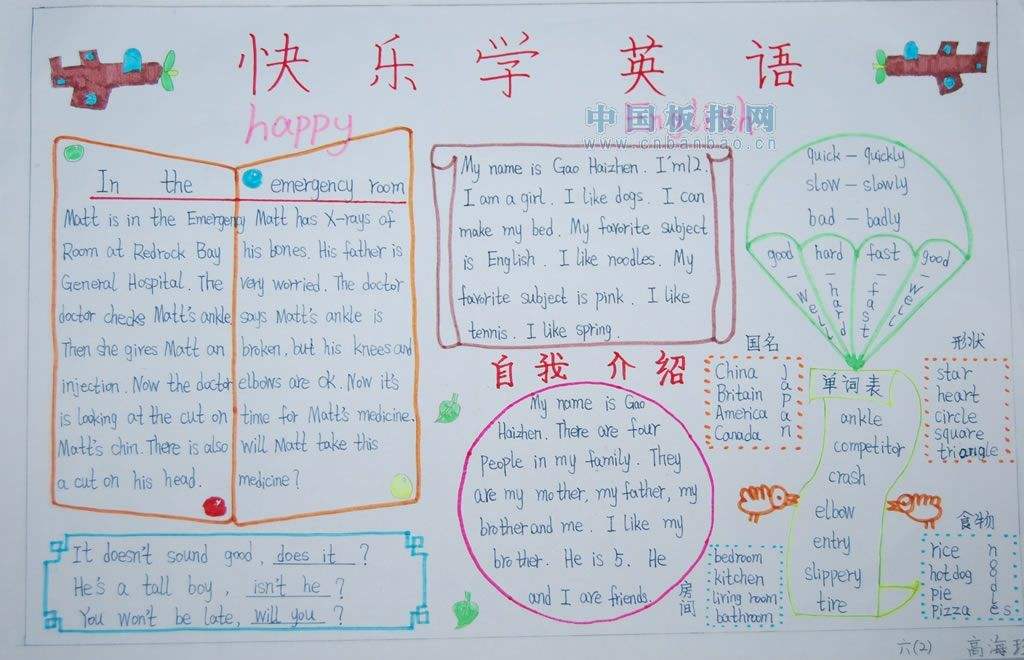 快乐学英语
happy English
中国板报网
www.cnbanbao.cn
In the emergency room
Matt is in the Emergency
Room at Redrock Bay
General Hospital. The
doctor checks Matt's ankle.
Then she gives Matt an
injection. Now the doctor
is looking at the cut on
Matt's chin. There is also
a cut on his head.
Matt has X-rays of
his bones. His father is
very worried. The doctor
says Matt's ankle is
broken, but his knees and
elbows are ok. Now it's
time for Matt's medicine.
Will Matt take this
medicine?
It doesn't sound good, does it ?
He's a tall boy, isn't he ?
You won't be late, will you ?
My name is Gao Haizhen. I'm12.
I am a girl. I like dogs. I can
make my bed. My favorite subject
is English. I like noodles. My
favorite subject is pink. I like
tennis. I like spring.
自我介绍
My name is Gao
Haizhen. There are four
people in my family. They
are my mother, my father, my
brother and me. I like my
brother. He is 5. He
and I are friends.
quick - quickly
slow - slowly
bad - badly
good - well
hard - hard
fast - fast
good - well
国名
China
Britain
America
Canada
Japan
形状
star
heart
circle
square
triangle
单词表
ankle
competitor
crash
elbow
entry
slippery
tire
房间
bedroom
kitchen
living room
bathroom
食物
rice
hotdog
pie
pizza
六(2)
高海